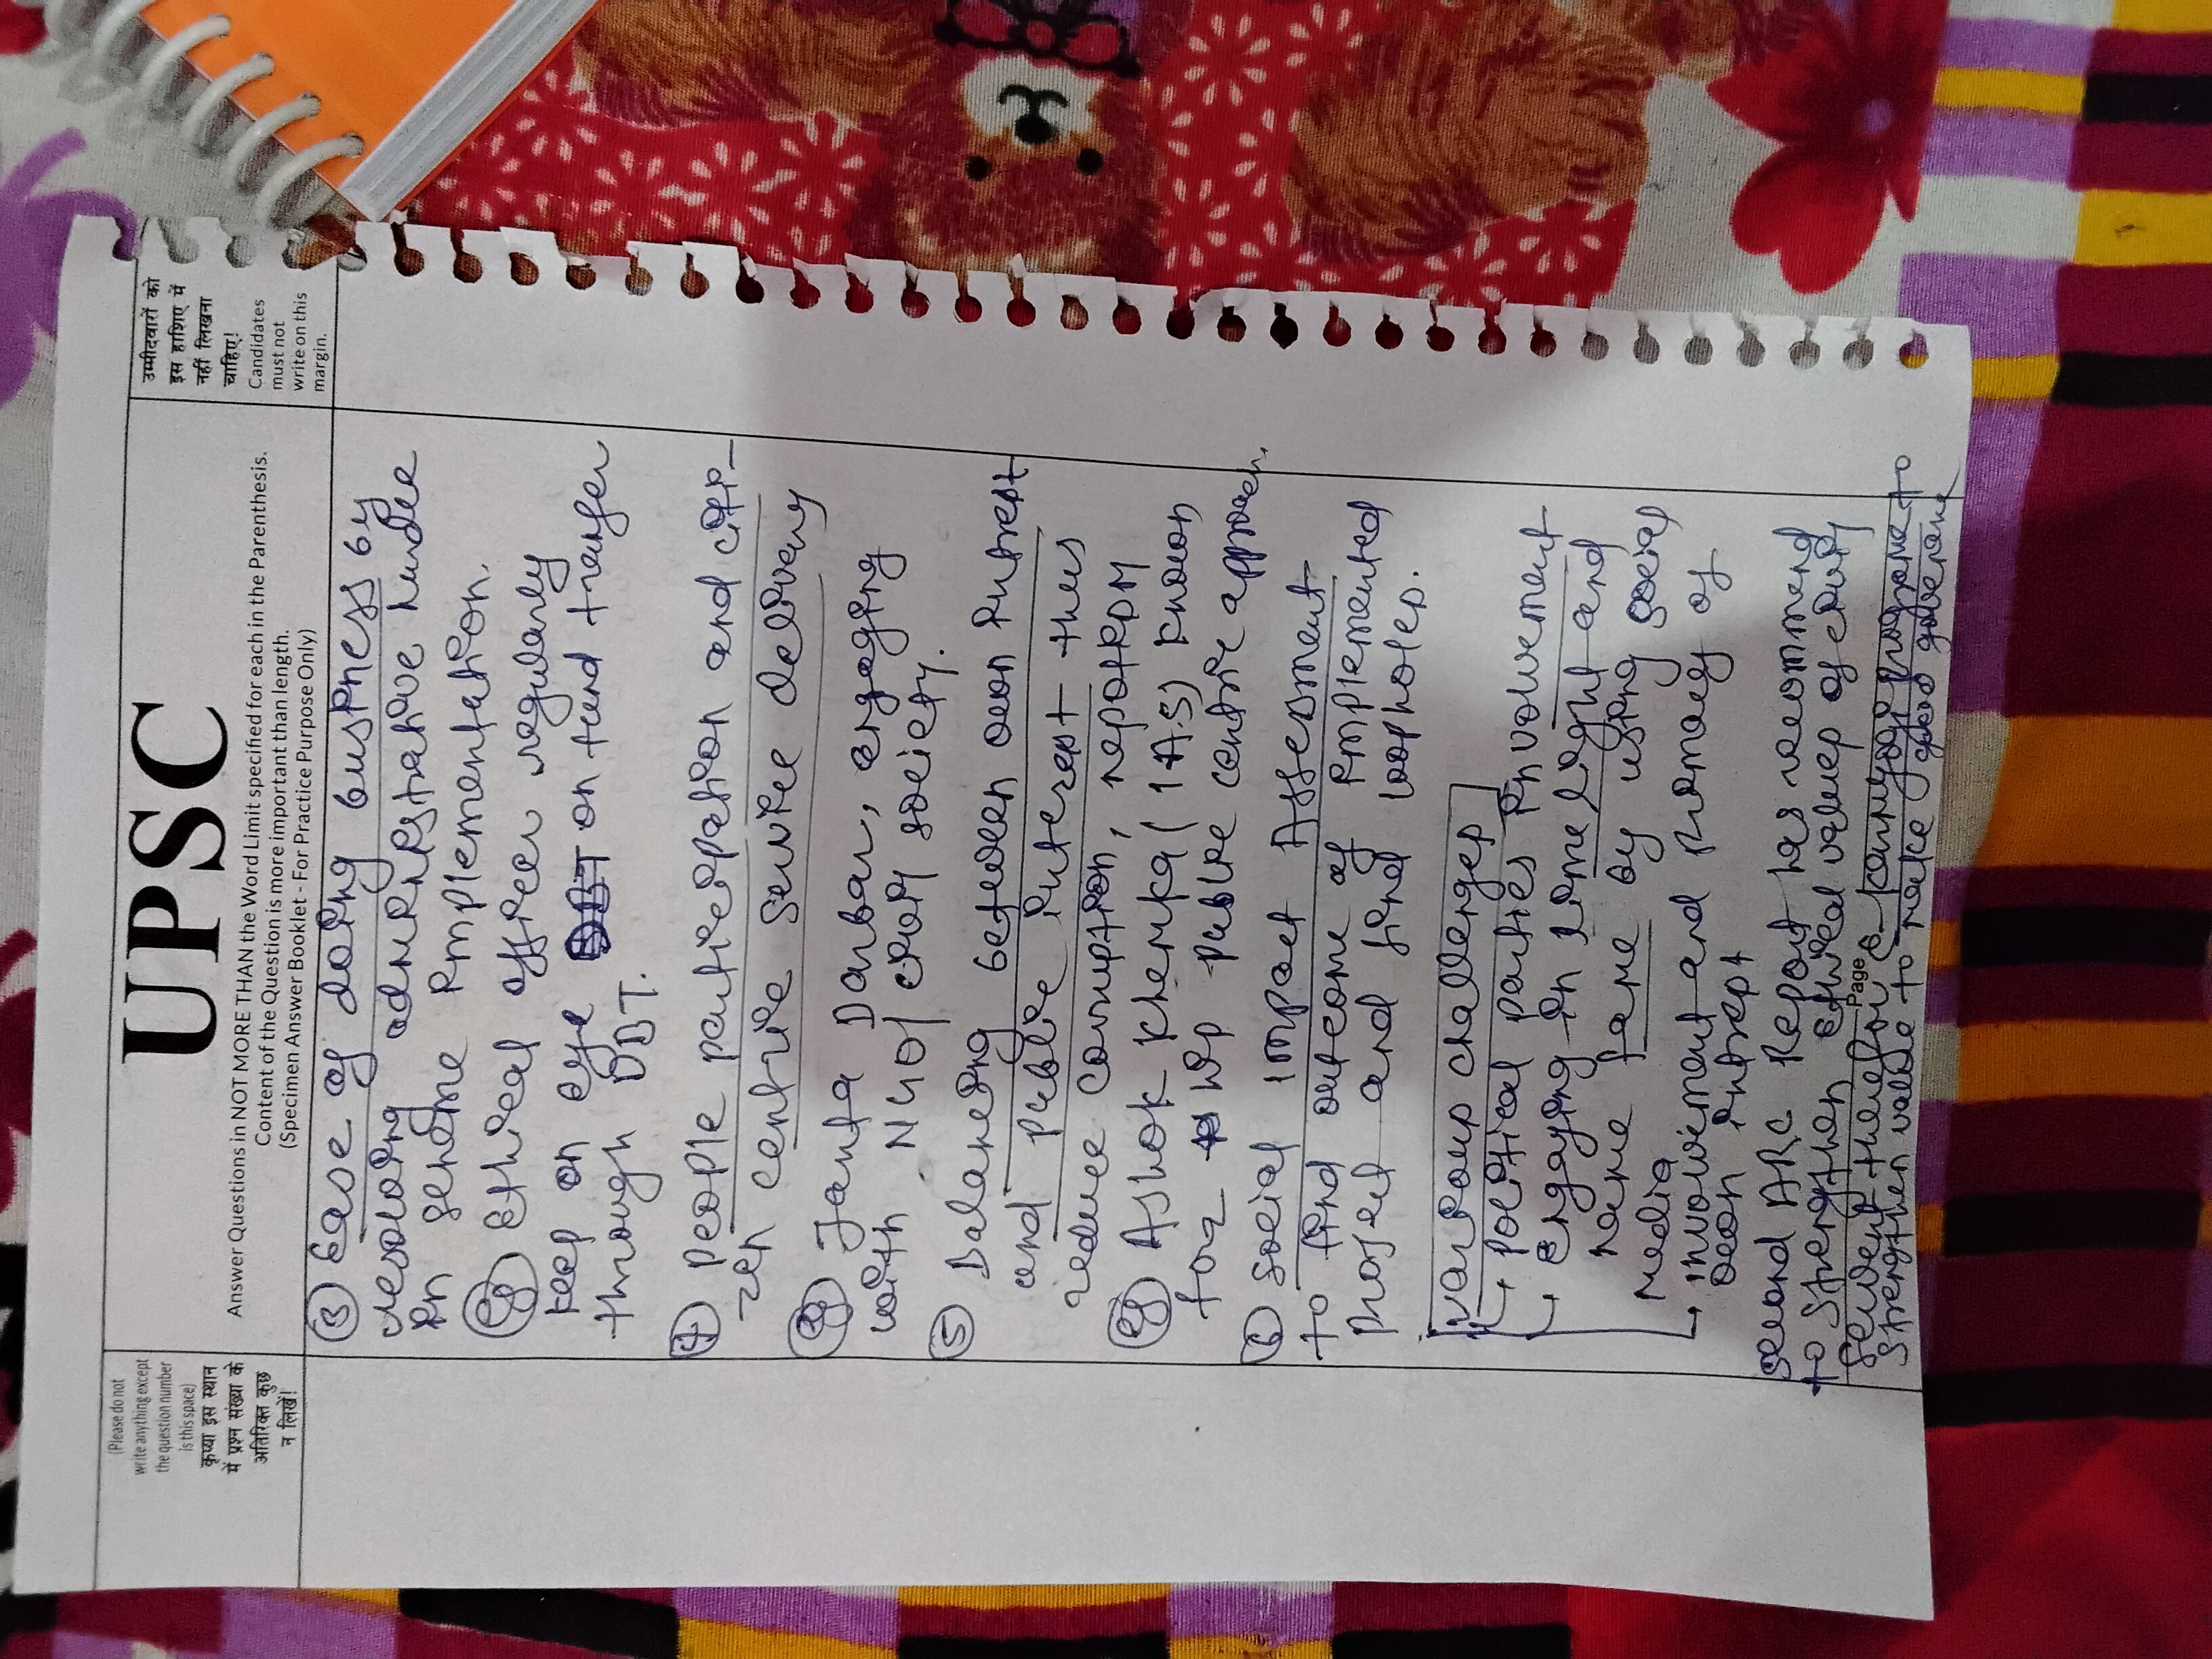 (Please do not
write anything except
the question number
is this space)
कृप्या इस स्थान
में प्रश्न संख्या के
अतिरिक्त कुछ
न लिखें!
UPSC
Answer Questions in NOT MORE THAN the Word Limit specified for each in the Parenthesis.
Content of the Question is more important than length.
(Specimen Answer Booklet - For Practice Purpose Only)
उम्मीदवारों को
इस हाशिए में
नहीं लिखना
चाहिए!
Candidates
must not
write on this
margin.
③ Ease of doing business by
resolving administrative hurdle
in scheme implementation.
eg Ethical officer regularly
keep an eye on fund transfer
through DBT.
④ People participation and citi-
zen centric service delivery
eg Janta Darbar, engaging
with NGO/civil society.
⑤ Balancing between own intrest
and public interest thus
reduce corruption, nepotism
eg Ashok Khemka (IAS) known
for public centric approach.
⑥ social impact Assessment
to find outcome of implemented
project and find loopholes.
various challenges
→ political parties involvement
→ Engaging in lime light and
name fame by using social
media
→ involvement and primacy of
own intrest
second ARC Report has recommend
to strengthen ethical values of civil
Page
servent therefore karmyogi programe to
strengthen value to make good governance